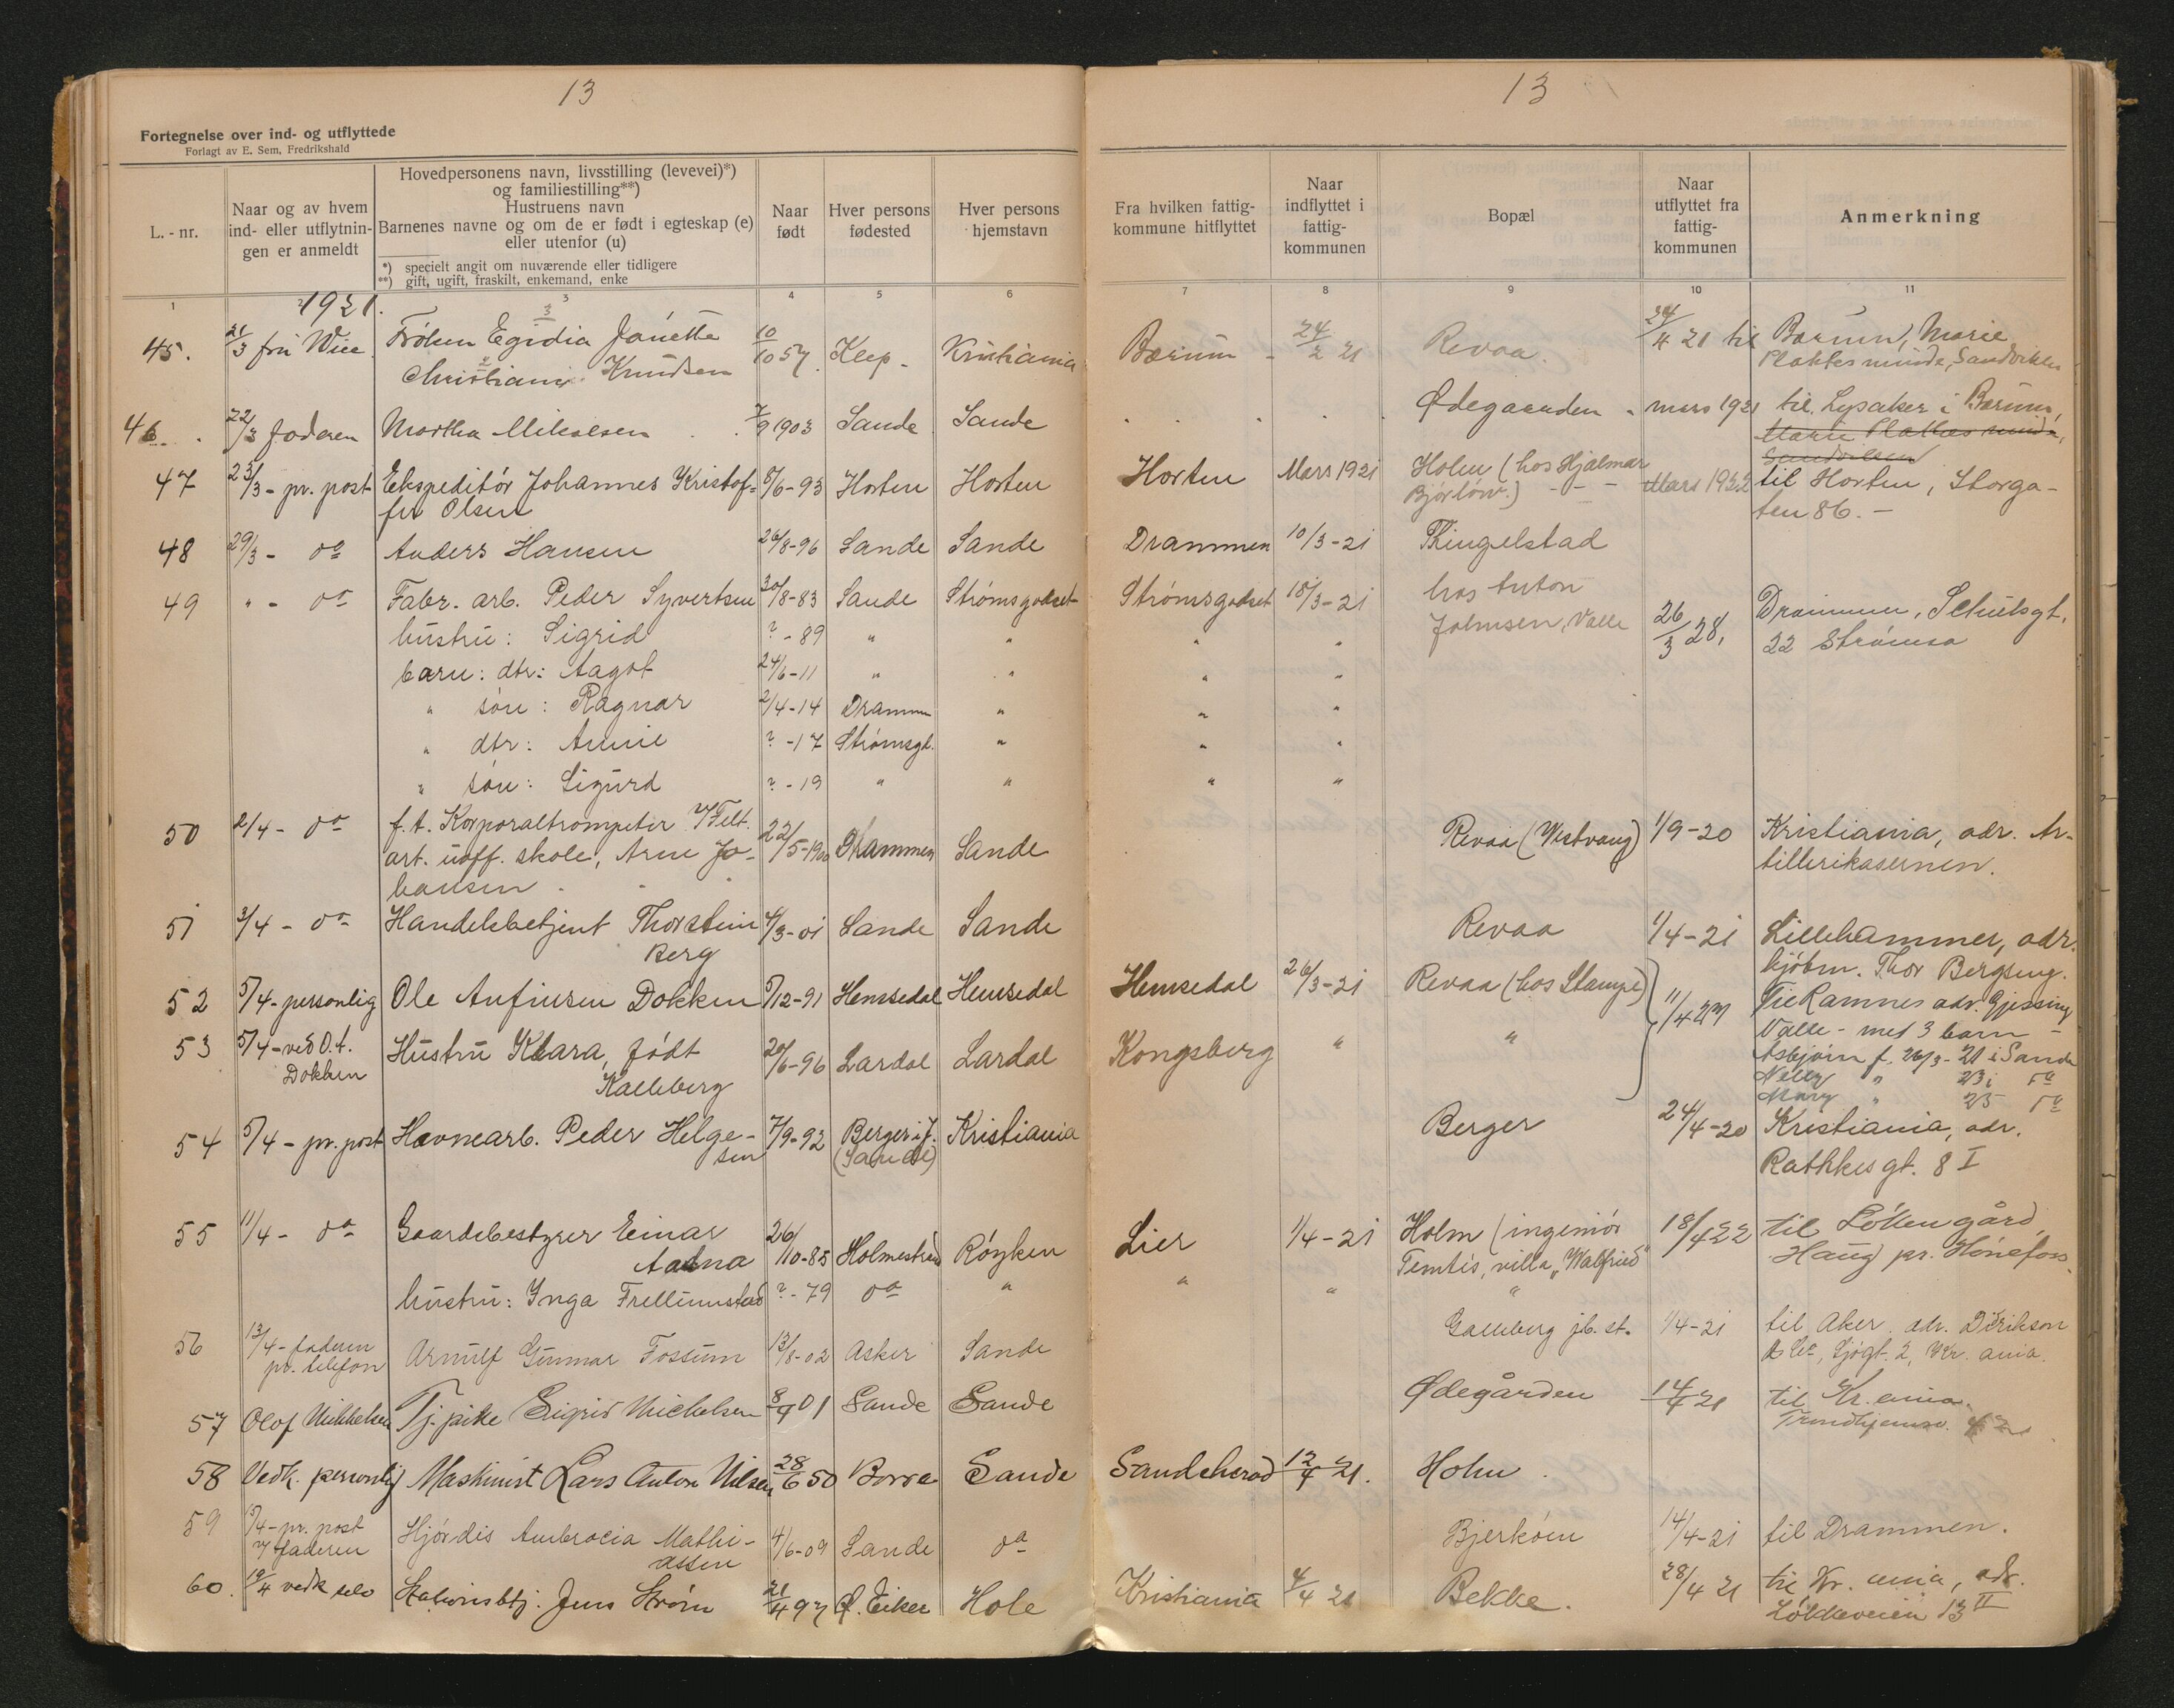 13
Fortegnelse over ind- og utflyttede
Forlagt av E. Sem, Fredrikshald
L.-nr.
Naar og av hvem ind- eller utflytningen er anmeldt
Hovedpersonens navn, livsstilling (levevei)*) og familiestilling**)
Hustruens navn
Barnenes navne og om de er født i egteskap (e) eller utenfor (u)
*) specielt angit om nuværende eller tidligere
**) gift, ugift, fraskilt, enkemand, enke
Naar født
Hver persons fødested
Hver persons hjemstavn
13
Fra hvilken fattigkommune hitflyttet
Naar indflyttet i fattigkommunen
Bopæl
Naar utflyttet fra fattigkommunen
Anmerkning
1 3 4 5 6 7 8 9 10 11
1921.
45. 21/3 fru Wiee Frøken Egidia Janette 10/10 57. Klep - Kristiania Bærum - 24/2 21 Revaa. 24/4 21 til Bærum, Marie
Christiani Knudsen Plahtes minde, Sandviken
46. 22/3 faderen Martha Mikalsen 7/9 1903 Sande Sande Ødegaarden - mars 1921 til Lysaker i Bærum,
Marie Plathes minde,
Sandviken
47 23/3 - pr. post Ekspeditør Johannes Kristof- 8/6-93 Horten Horten Horten Mars 1921 Holm (hos Hjalmar Mars 1922 til Horten, Storga-
fer Olsen Bjørløw.) - - - ten 86. -
48 29/3 - do Anders Hansen 26/8-96 Sande Sande Drammen 10/3-21 Thingelstad
49 " - do Fabr. arb. Peder Syvertsen 30/8-83 Sande Strømsgodset Strømsgodset 18/3-21 hos Anton
hustru: Sigrid ? - 89 " " " " Johnsen, Valle 26/3 28, Drammen, Schultsgt.
22 Strømsø
barn: dtr: Aagot 24/6-11 " " " "
" søn: Ragnar 2/4-14 Drammen " " "
" dtr: Annie ? -17 Strømsgt. " " "
" søn: Sigurd ? -19 " " " "
50 2/4 - do f.t. Korporaltrompeter v/Felt. 22/5-1900 Drammen Sande Revaa (Vestvang) 1/9-20 Kristiania, adr. Ar-
art. uoff. skole, Arne Jo- tillerikasernen.
hansen
51 3/4 - do Handelsbetjent Thorstein 4/3-01 Sande Sande Revaa 1/4-21 Lillehammer, adr.
Berg kjøbm. Thor Bergseng.
52 5/4 - personlig Ole Anfinsen Dokken 5/12-91 Hemsedal Hemsedal Hemsedal 26/3-21 Revaa (hos Stampe) 11/4 27 Til Ramnes adr. Gjessing
53 5/4 - ved O.A. Hustru Klara, født 20/6-96 Lardal Lardal Kongsberg " " Valle - med 3 barn -
Dokken Kalleberg Asbjørn f. 26/3-21 i Sande
Nelly " 23 i do
Mary " 25 do
54 5/4 - pr. post Havnearb. Peder Helge- 7/9-92 Berger i J. Kristiania Berger 24/4-20 Kristiania, adr.
sen (Sande) Rathkes gt. 8 I
55 11/4 - do Gaardsbestyrer Einar 26/10-85 Holmestrand Røyken Lier 1/4-21 Holm (ingeniør 18/4 22 til Løken gård,
Aadna Temtés, villa "Walfried" Haug pr. Hønefoss.
hustru: Inga Frellumstad ? - 79 do " " " "
56 13/4 - faderen Arnulf Gunnar Fossum 13/8-02 Asker Sande Galleberg jb. st. 1/4-21 til Aker, adr. Didrikson
pr. telefon & Co, Sjøgt. 2, Kr. ania.
57 Olof Mikkelsen Tj. pike Sigrid Michelsen 8/9 01 Sande Sande Ødegården 14/4 21 til Kr. ania.
Trondhjemsv.
58 Vedk. personlig Maskinist Lars Anton Nilsen 28/6 50 Borre Sande Sandeherad 12/4 21. Holm.
59 15/4 - pr. post Hjørdis Ambrocia Mathi- 4/6-09 Sande do Bjerkøen 14/4-21 til Drammen.
v/ faderen assen
60. 19/4 vedk selv Stationsbtj. Jens Strøm 21/4 97 Ø. Eiker Hole Kristiania 4/4 21 Bekke. 28/4 21 til Kr. ania, adr.
Løkkeveien 13 II